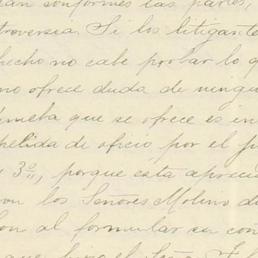 tán conformes las partes,
troversea. Si los litigante
hecho no cabe probar lo q
no ofrece duda de ningu
rueba que se ofrece es in
pelida de oficio, por el ju
y 3º, porque esta aprecia
ron los Señores Molino d
ion al formular su con